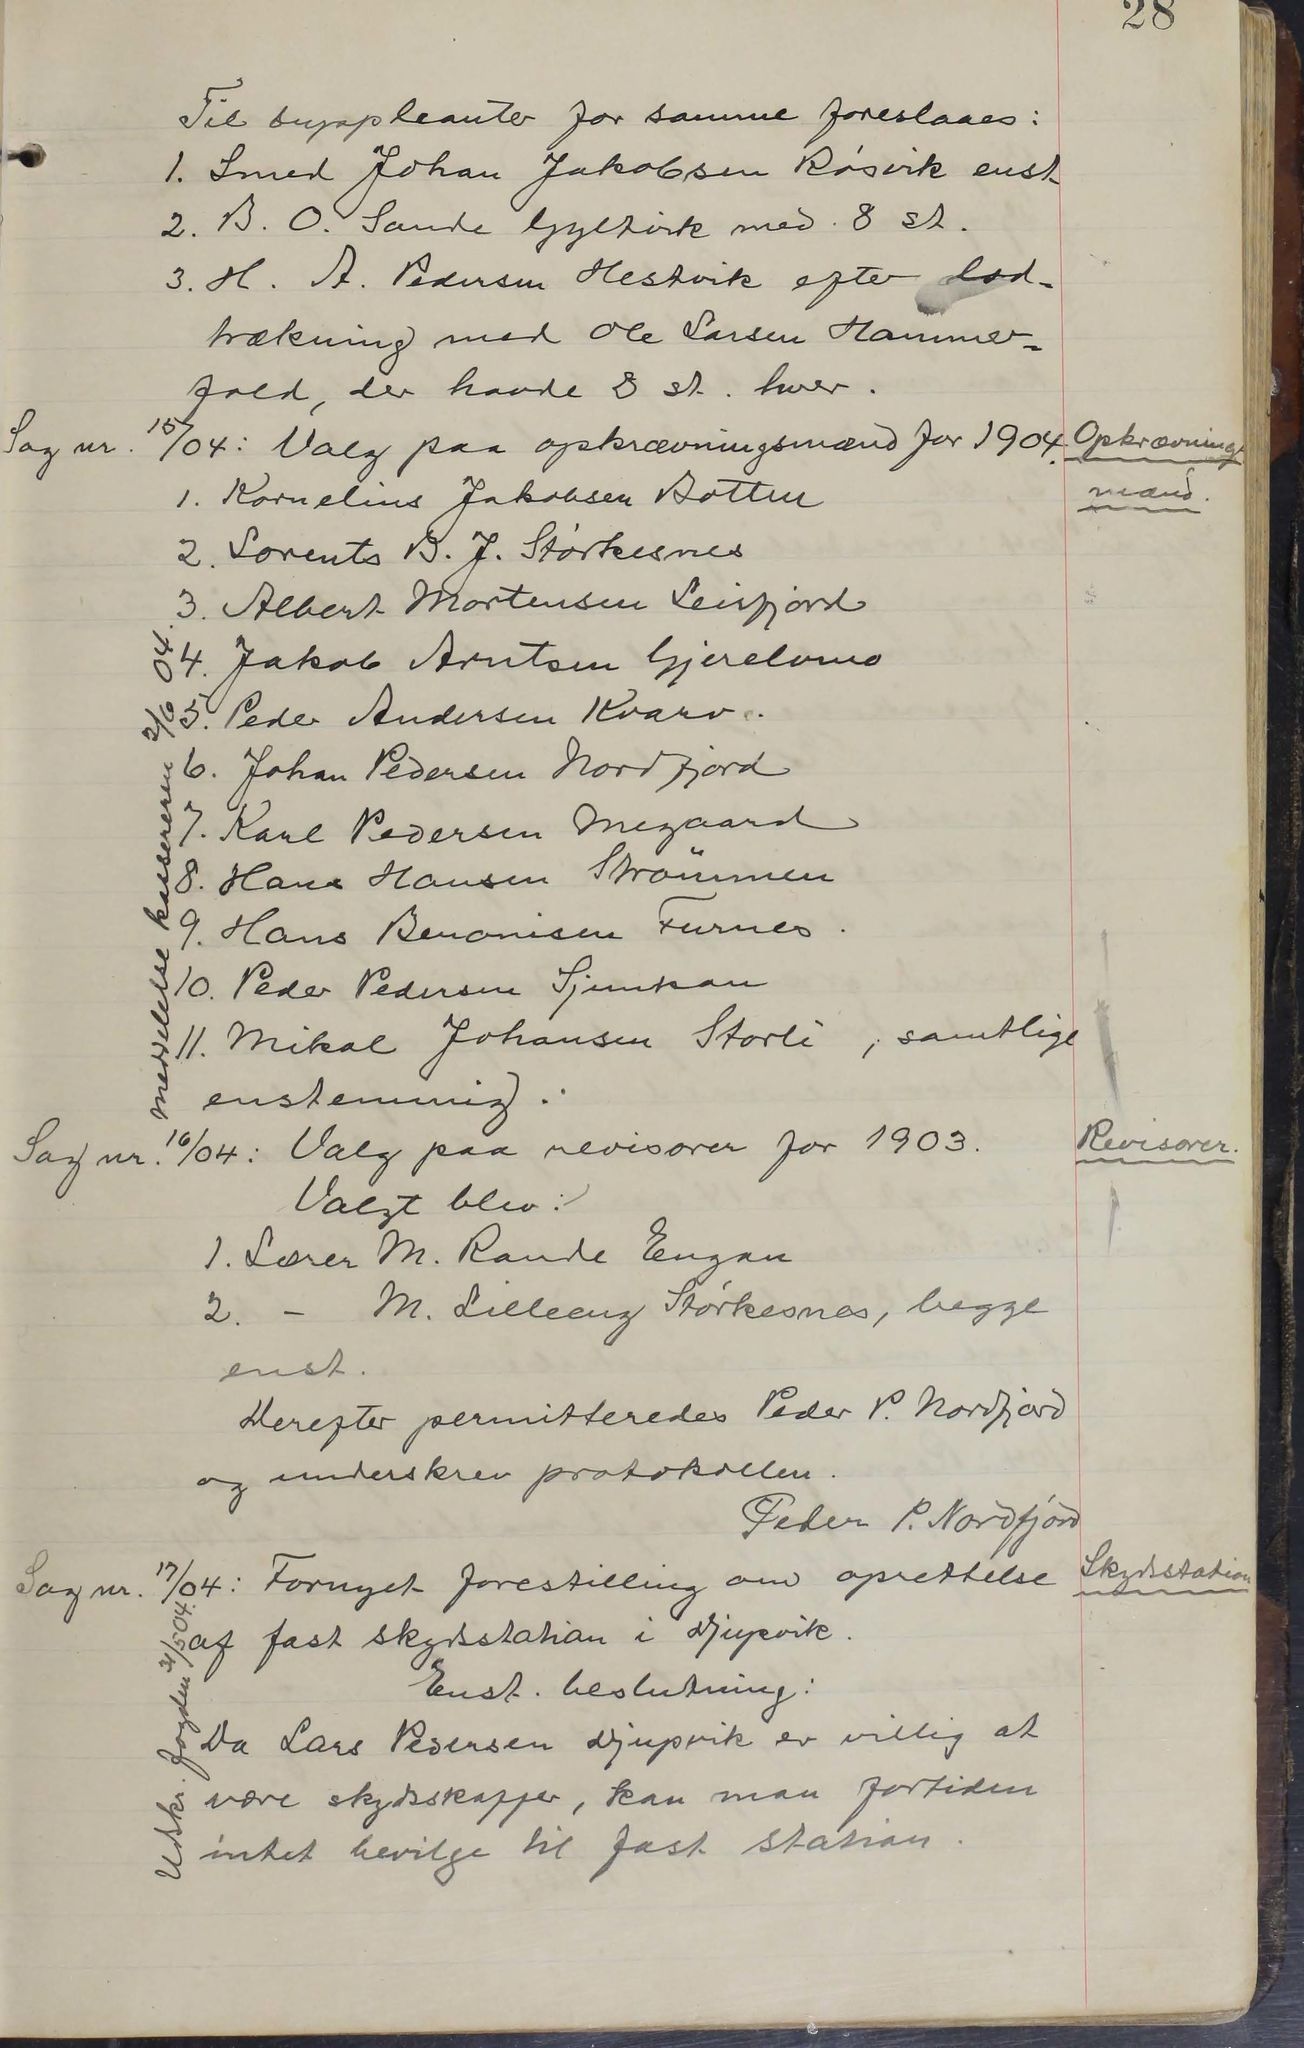 28
Til suppleanter for samme foreslaaes:
1. Smed Johan Jakobsen Røsvik enst
2. B. O. Sande Gyltvik med 8 st.
3. H. A. Pedersen Hestvik efter lod-
trækning med Ole Larsen Hammer-
fald, der havde 8 st. hver.
Sag nr. 15/04: Valg paa opkrævningsmænd for 1904.
Opkrævnings
mænd.
1. Kornelius Jakobsen Botten
2. Lorents B. J. Størkesnes
3. Albert Mortensen Leisfjord
4. Jakob Arntsen Gjerelvmo
5. Peder Andersen Kvarv.
6. Johan Pedersen Nordfjord
7. Karl Pedersen Megaard
8. Hans Hansen Strømmen
9. Hans Beronisen Furnes.
10. Peder Pedersen Sjunkan
11. Mikal Johansen Storli, samtlige
enstemmig.
Meddelelse kassereren 2/6 04.
Sag nr. 16/04: Valg paa revisorer for 1903.
Revisorer.
Valgt blev:
1. Lærer M. Rande Engan
2. - M. Lilleeng Størkesnes, begge
enst.
Derefter permitteredes Peder P. Nordfjord
og underskrev protokollen.
Peder P. Nordfjord
Sag nr. 17/04: Fornyet forestilling om oprettelse
Skydsstation
af fast skydsstation i Djupvik.
Enst. beslutning:
Da Lars Pedersen Djupvik er villig at
være skydsskaffer, kan man fortiden
intet bevilge til fast station.
Udskr. fogden 31/5 04.